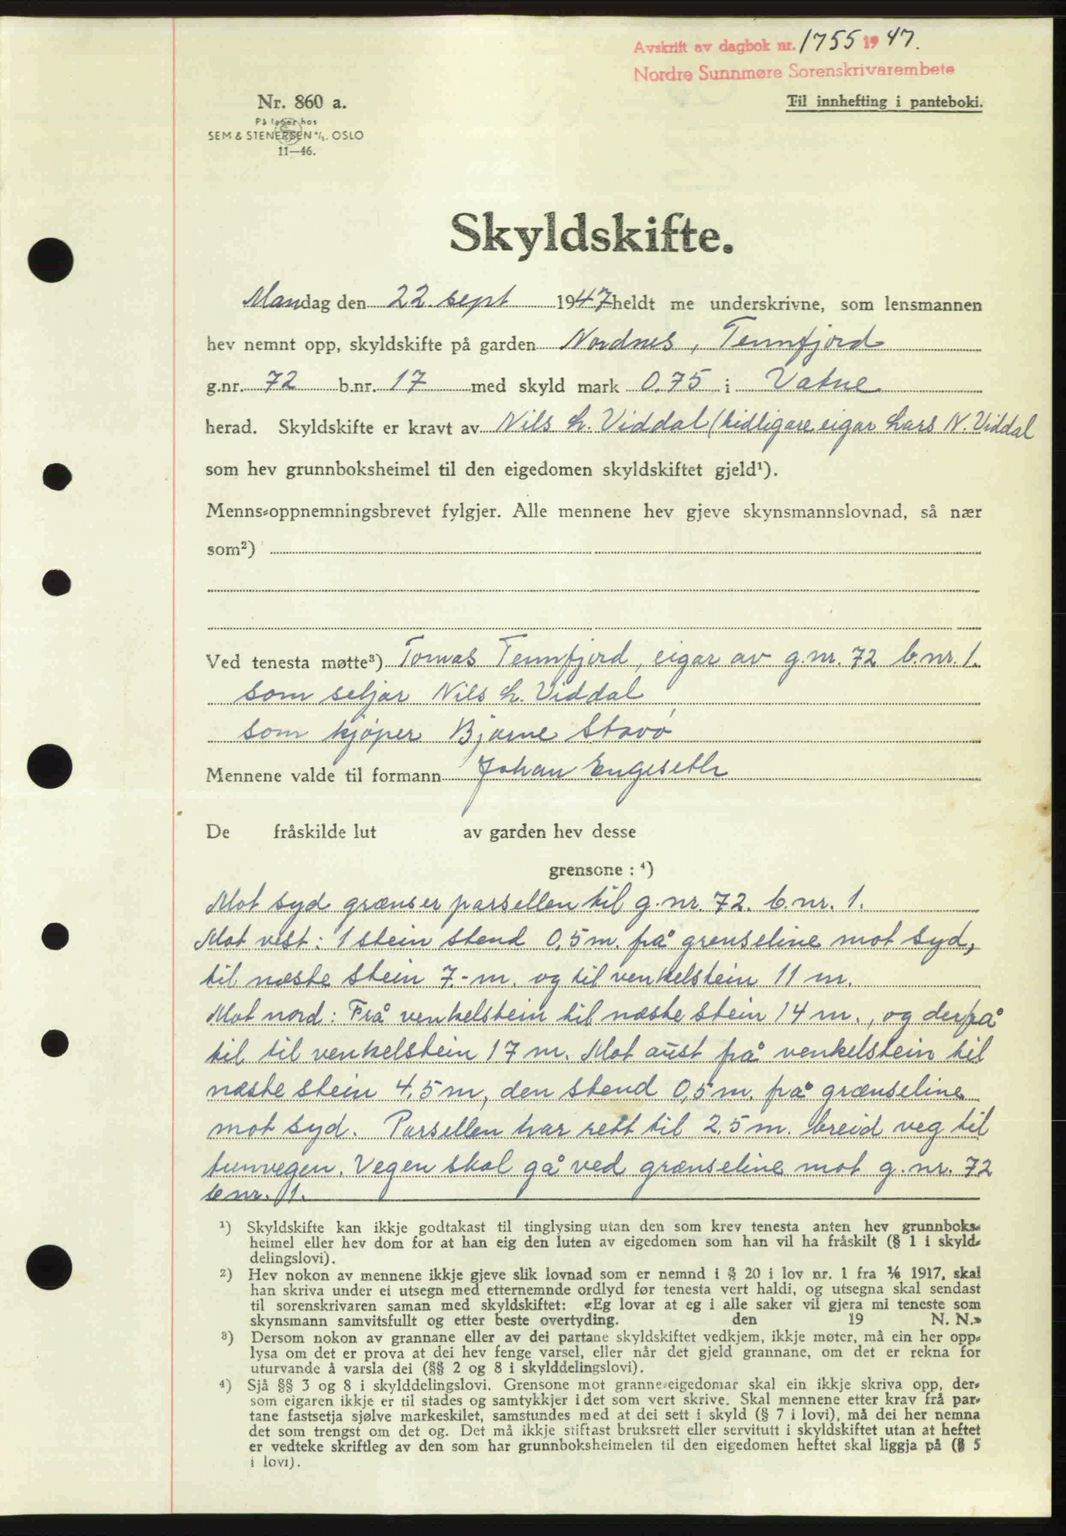 Avskrift av dagbok nr. 1755 1947.
Nordre Sunnmøre Sorenskrivarembete
Til innhefting i panteboki.
Nr. 860 a.
På lager hos
SEM & STENERSEN A/S. OSLO
11—46.
Skyldskifte.
Mandag den 22. sept 1947 heldt me underskrivne, som lensmannen
hev nemnt opp, skyldskifte på garden Nordnes, Tennfjord
g.nr. 72 b.nr. 17 med skyld mark 0.75 i Vatne
herad. Skyldskifte er kravt av Nils L. Viddal (tidligare eigar Lars N. Viddal
som hev grunnboksheimel til den eigedomen skyldskiftet gjeld¹).
Menns-oppnemningsbrevet fylgjer. Alle mennene hev gjeve skynsmannslovnad, så nær
som²)
Ved tenesta møtte³) Tomas Tennfjord, eigar av g.nr. 72 b.nr. 1.
som seljar Nils L. Viddal
som kjøper Bjarne Stavø
Mennene valde til formann Johan Engeseth
De fråskilde lut av garden hev desse
grensone : ⁴)
Mot syd grænser parsellen til g.nr. 72. b.nr. 1.
Mot vest: 1 stein stend 0,5 m. frå grenseline mot syd,
til næste stein 7.- m. og til venkelstein 11 m.
Mot nord: Frå venkelstein til næste stein 14 m., og derfrå
til til venkelstein 17 m. Mot aust frå venkelstein til
næste stein 4,5 m, den stend 0,5 m. frå grænseline
mot syd. Parsellen har rett til 2,5 m. breid veg til
tunvegen. Vegen skal gå ved grænseline mot g.nr. 72
b.nr. 1.
¹) Skyldskifte kan ikkje godtakast til tinglysing utan den som krev tenesta anten hev grunnboks-
heimel eller hev dom for at han eig den luten av eigedomen som han vil ha fråskilt (§ 1 i skyld-
delingslovi).
²) Hev nokon av mennene ikkje gjeve slik lovnad som er nemnd i § 20 i lov nr. 1 fra 1/6 1917, skal
han skriva under ei utsegn med etternemnde ordlyd før tenesta vert haldi, og utsegna skal sendast
til sorenskrivaren saman med skyldskiftet: «Eg lovar at eg i alle saker vil gjera mi teneste som
skynsmann samvitsfullt og etter beste overtyding. den 19 N. N.»
³) Dersom nokon av grannane eller av dei partane skyldskiftet vedkjem, ikkje møter, må ein her opp-
lysa om det er prova at dei hev fenge varsel, eller når det gjeld grannane, om det er rekna for
uturvande å varsla dei (§§ 2 og 8 i skylddelingslovi).
⁴) Sjå §§ 3 og 8 i skylddelingslovi. Grensone mot granne-eigedomar skal ein ikkje skriva opp, der-
som eigaren ikkje er til stades og samtykkjer i det som vert skrive. Skal mennene etter krav frå par-
tane fastsetja sjølve markeskilet, samstundes med at dei sett i skyld (§ 7 i lovi), må dei her nemna
det som trengst om det og. Det må ikkje stiftast bruksrett eller servitutt i skyldskiftet utan at heftet
er vedteke skriftleg av den som har grunnboksheimelen til den eigedomen heftet skal liggja på (§ 5
i lovi).